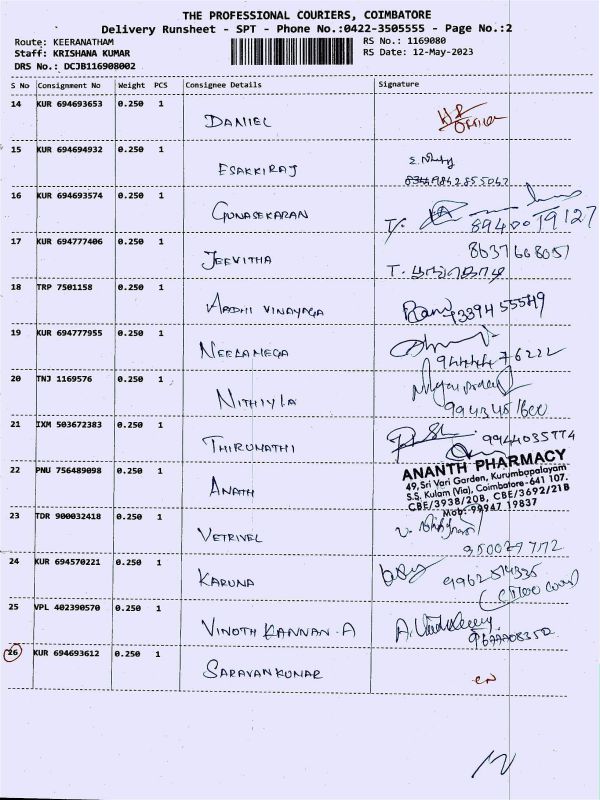 THE PROFESSIONAL COURIERS, COIMBATORE
Delivery Runsheet - SPT - Phone No.:0422-3505555 - Page No.:2
Route: KEERANATHAM
RS No.: 1169080
Staff: KRISHANA KUMAR
RS Date: 12-May-2023
DRS No.: DCJB116908002
S No Consignment No Weight PCS Consignee Details Signature
14 KUR 694693653 0.250 1 DANIEL
OFFICE
15 KUR 694694932 0.250 1 ESAKKIRAJ
9842855042
16 KUR 694693574 0.250 1 GUNASEKARAN
8940019127
17 KUR 694777406 0.250 1 JEEVITHA
8637668051
18 TRP 7501158 0.250 1 AADHI VINAYAGA
Ram
19 KUR 694777955 0.250 1 NEELAMEGA
9444476222
20 TNJ 1169576 0.250 1 NITHIYLA
21 IXM 503672383 0.250 1 THIRUNATHI
9944035774
22 PNU 756489098 0.250 1 ANATH
ANANTH PHARMACY
49, Sri Vari Garden, Kurumbapalayam
S.S. Kulam (Via), Coimbatore-641 107.
CBE/3938/20B, CBE/3692/21B
Mob: 99947 19837
23 TDR 900032418 0.250 1 VETRIVEL
24 KUR 694570221 0.250 1 KARUNA
9962514335
25 VPL 402390570 0.250 1 VINOTH KANNAN.A
26 KUR 694693612 0.250 1 SARAVANKUMAR